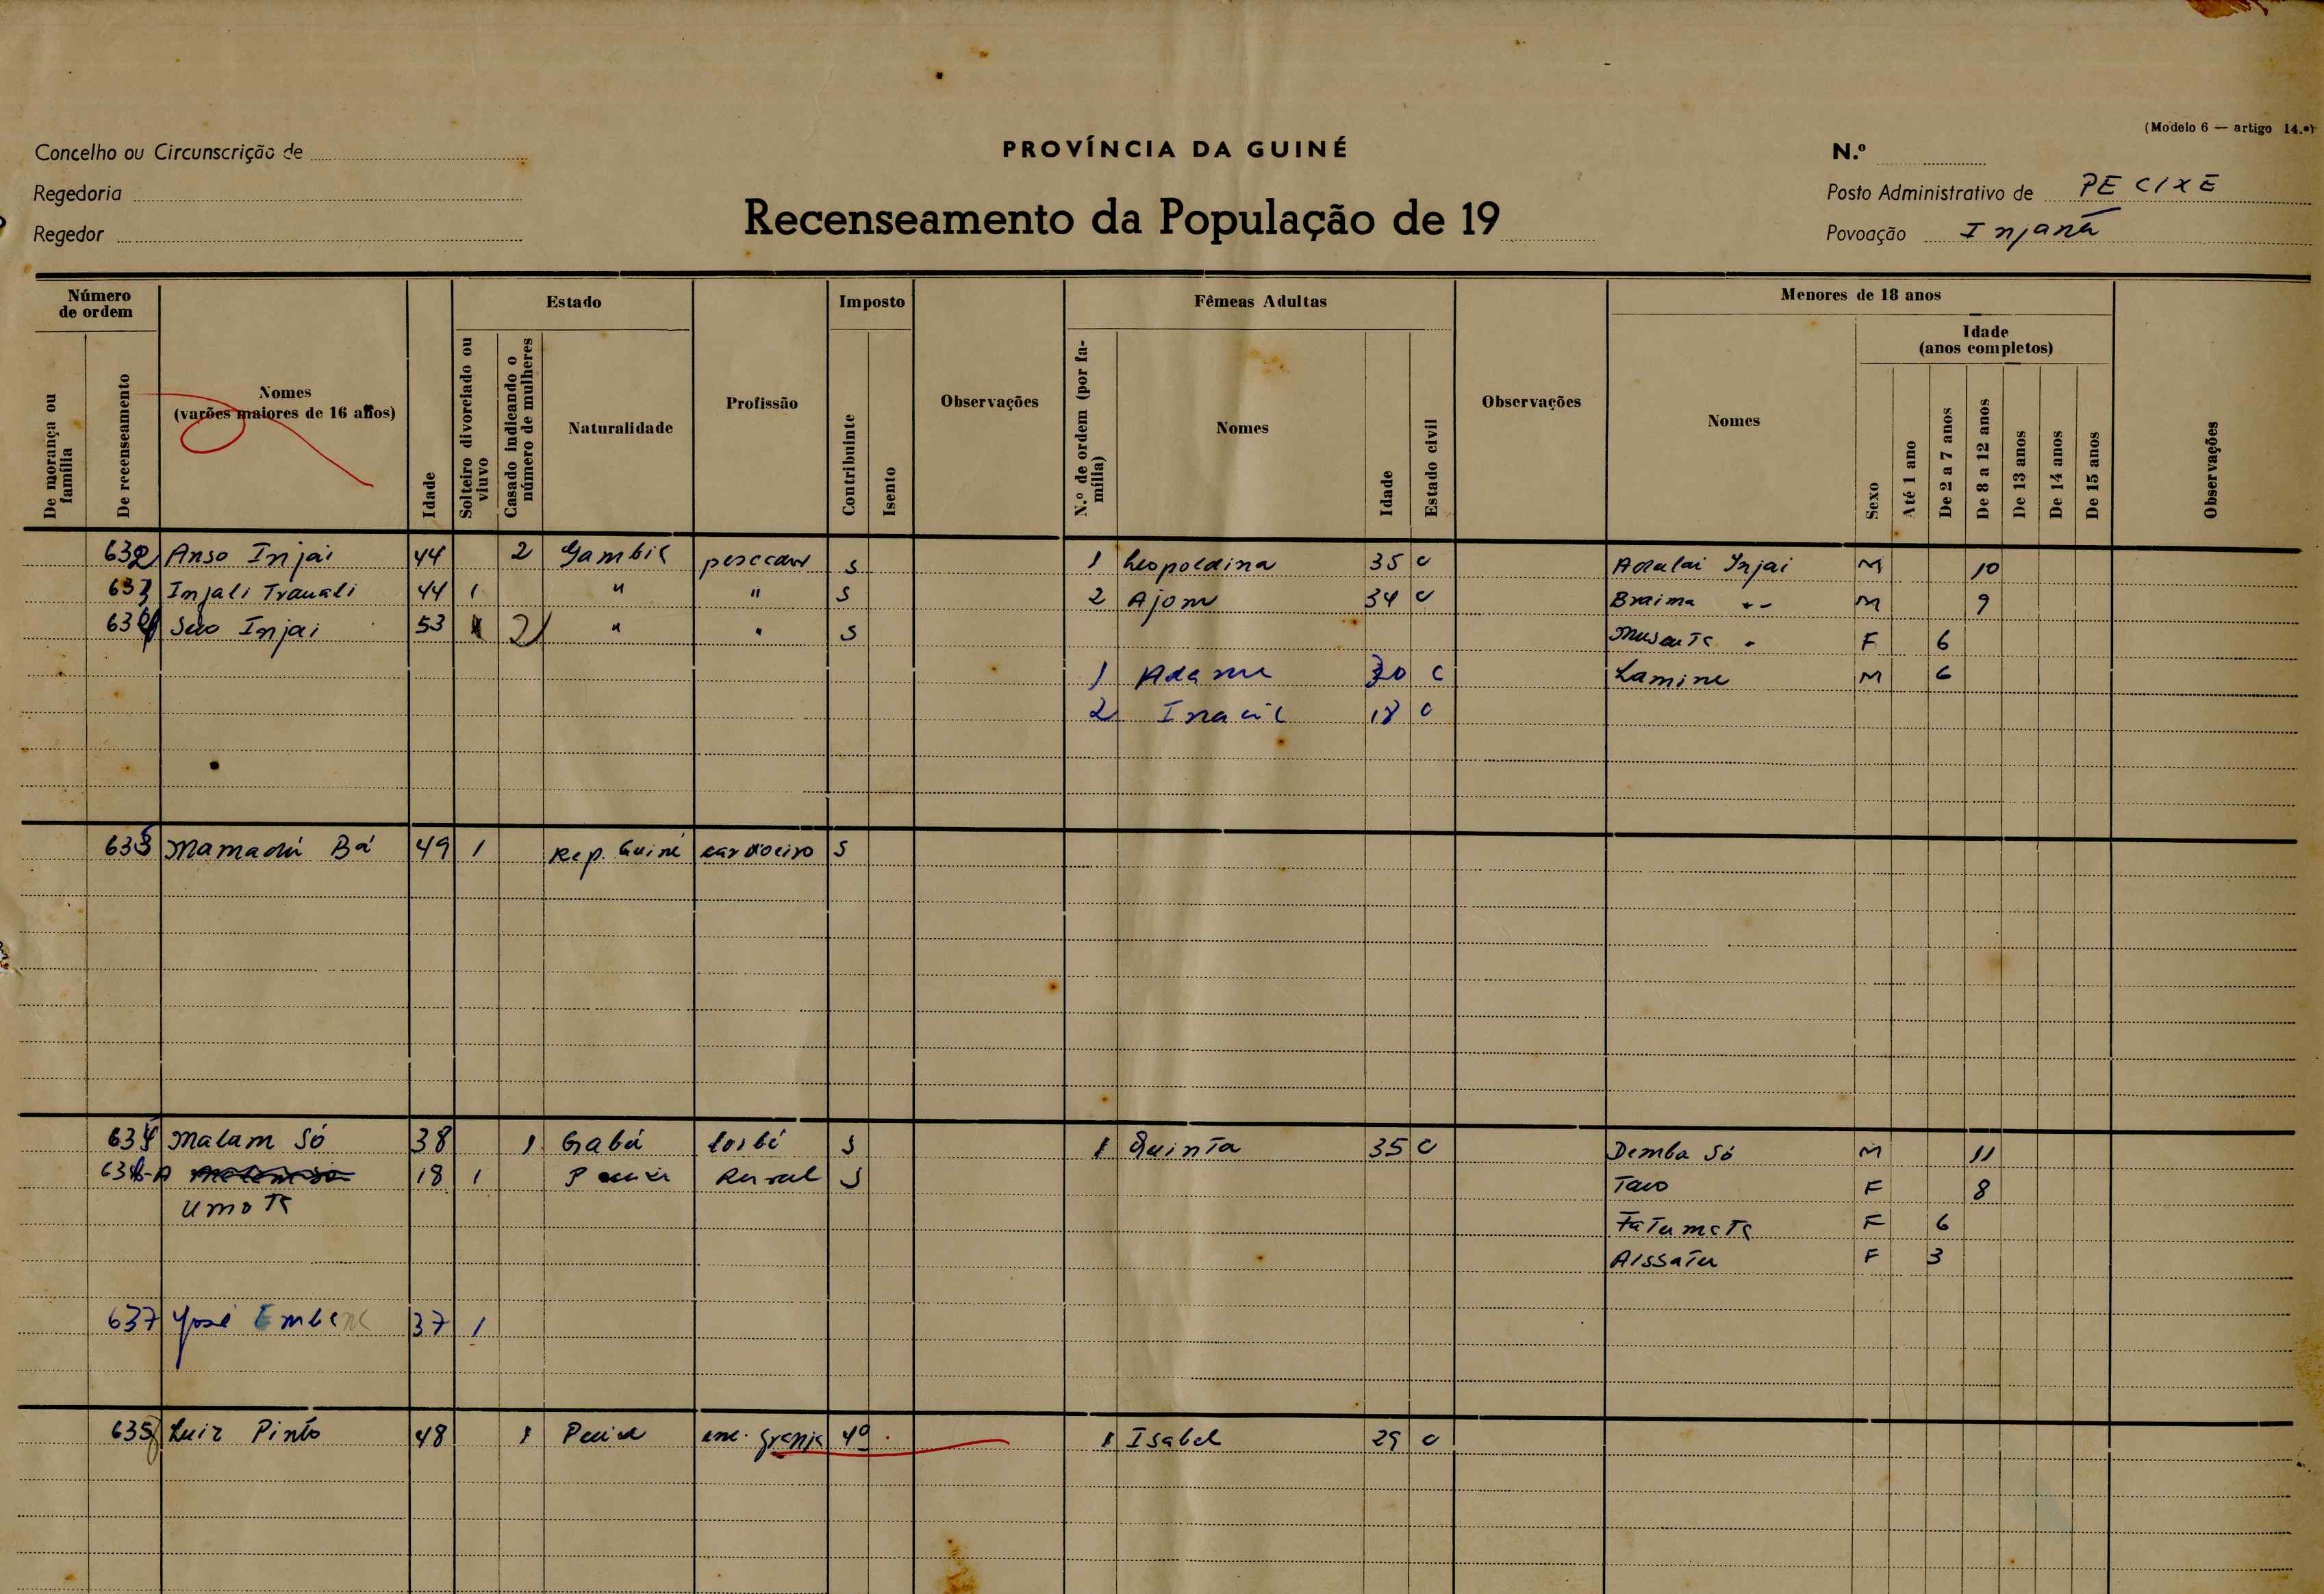 (Modelo 6 — artigo 14.º)
Concelho ou Circunscrição de
PROVÍNCIA DA GUINÉ
N.º
Regedoria
Posto Administrativo de PECIXE
Recenseamento da População de 19
Regedor
Povoação Injanã
Número de ordem
Estado
Imposto
Fêmeas Adultas
Menores de 18 anos
Idade (anos completos)
De morança ou família
De recenseamento
Nomes (varões maiores de 16 anos)
Idade
Solteiro divorciado ou viuvo
Casado indicando o número de mulheres
Naturalidade
Profissão
Contribuinte
Isento
Observações
N.º de ordem (por família)
Nomes
Idade
Estado civil
Observações
Nomes
Sexo
Até 1 ano
De 2 a 7 anos
De 8 a 12 anos
De 13 anos
De 14 anos
De 15 anos
Observações
632 Anso Injai 44 2 Gambia pescador S 1 Leopoldina 35 C Adulai Injai M 10
633 Injali Trauali 44 1 " " S 2 Ajom 34 C Braima M 9
Injai 53 2 " " S F 6
1 Adama 30 C Lamine M 6
2 18 C
Mamadú Bá 49 1 Rep. Guiné carvoeiro S
Malam Só 38 1 Gabú S 1 Quinta 35 C Demba Só M 11
18 1 Rural S F 8
Fatumata F 6
Aissatu F 3
637 José 37 1
Luiz Pinto 48 1 enc. granja 1 Isabel 29 C